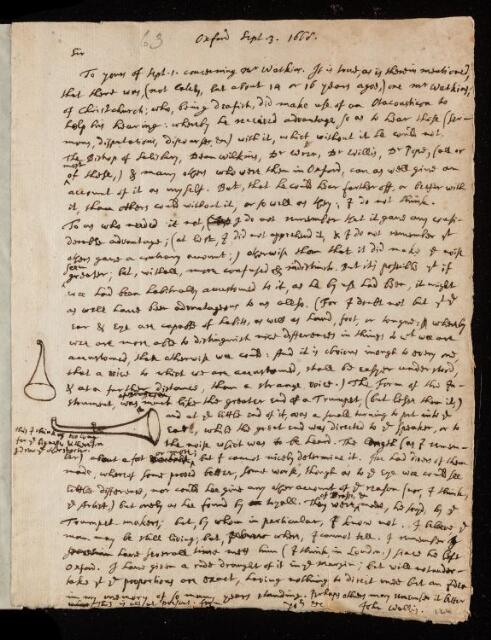 63
Oxford Sept. 3. 1668.
Sir
To yours of Sept. 1. concerning Mr Watkins. It is true, as is therein mentioned,
that there was, (not lately, but about 14 or 16 years agoe,) one Mr Watkins,
of Christchurch; who, being deafish, did make use of an Otacousticon to
help his hearing: whereby he received advantage, so as to hear those (ser-
mons, disputations, discourses, &c) with it, which without it he could not.
The Bishop of Salisbury, Dean Wilkins, Dr Wren, Dr Willis, Dr Pope, (all or
most
of those,) & many others who were then in Oxford, can as well give an
account of it as my self. But, that he could hear farther off, or better with
it, than others could without it, or so well as they; I do not think.
To us who needed it not, I do not remember that it gave any consi-
derable advantage; (at lest, I did not apprehend it, & I do not remember yt
others gave a contrary account:) otherwise than that it did make ye noise
seem
greater; but, withall, more confused & indistinct. But it is possible yt if
wee had been habitually accustomed to it, as he by use had been, it might
as well have been advantagious to us allso. (For I doubt not but yt ye
ear & eye are capable of habits, as well as hand, foot, or tongue; whereby
wee are more able to distinguish nice differences in things to wch we are
accustomed, than otherwise wee could: And it is obvious inough to every one,
that a voice to which we are accustomed, shall be easyer understood,
& at a farther distance, than a strange voice.) The form of this In-
strument was much like the greater end of a Trumpet, (but lesser than it;)
and at ye little end of it, was a small turning to put into ye
ear, whilst the great end was directed to ye speaker, or to
the noise which was to be heard. The length (as I remem-
ber) about a foot but I cannot nicely determine it. Hee had divers of them
made, whereof some proved better, some worse, though as to ye eye wee could see
little difference, nor could hee give any other account of ye reason (nor, I think,
ye Artist) but onely as hee found by tryall. They were made, he sayd, by ye
of Brass, &
Trumpet-makers; but, by whom in particular, I know not. I believe ye
man may be still living; but, where, I cannot tell. I remember I
have severall times mett him (I think in London) since he left
Oxford. I have given a rude draught of it in ye margin; but will not under-
take yt ye proportions are exact, having nothing to direct mee but an Idea
in my memory of so many years standing. Perhaps others may remember it better
This is all at present from
John Wallis.
this I think